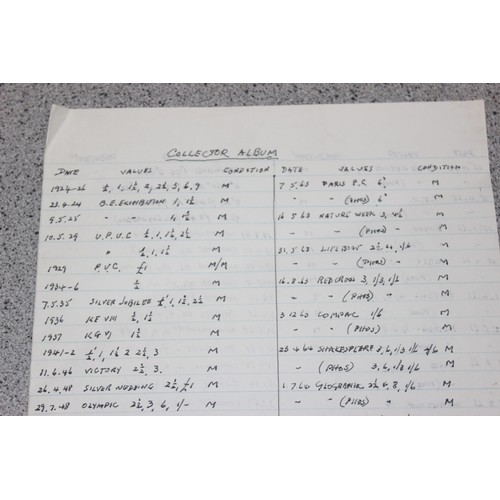 COLLECTOR ALBUM
DATE VALUES CONDITION
1924-26 ½, 1, 1½, 2, 2½, 5, 6, 9 M
23.4.24 B.E. EXHIBITION 1, 1½ M
9.5.25 " " 1, 1½ M
10.5.29 U.P.U.C ½, 1, 1½, 2½ M
" ½, 1, 1½ M
1929 P.U.C. £1 M/M
1934-6 ½ M
7.5.35 SILVER JUBILEE ½, 1, 1½, 2½ M
1936 KE VIII ½, 1½ M
1937 KG VI 1½ M
1941-2 ½, 1, 1½ 2 2½, 3 M
11.6.46 VICTORY 2½, 3. M
26.4.48 SILVER WEDDING 2½, £1 M
29.7.48 OLYMPIC 2½, 3, 6, 1/- M
DATE VALUES CONDITION
7.5.63 PARIS P.C 6 M
" " (PHOS) 6 M
16.5.63 NATURE WEEK 3, 4½ M
" " (PHOS) " M
31.5.63 LIFEBOAT 2½, 4, 1/6 M
" " (PHOS) " M
15.8.63 RED CROSS 3, 1/3, 1/6 M
" " (PHOS) " M
3.12.63 COMPAC 1/6 M
23.4.64 SHAKESPEARE 3, 6, 1/3 1/6 2/6 M
" (PHOS) 3, 6, 1/3 1/6 M
1.7.64 GEOGRAPHIC 2½ 4, 8, 1/6 M
" " (PHOS) " M